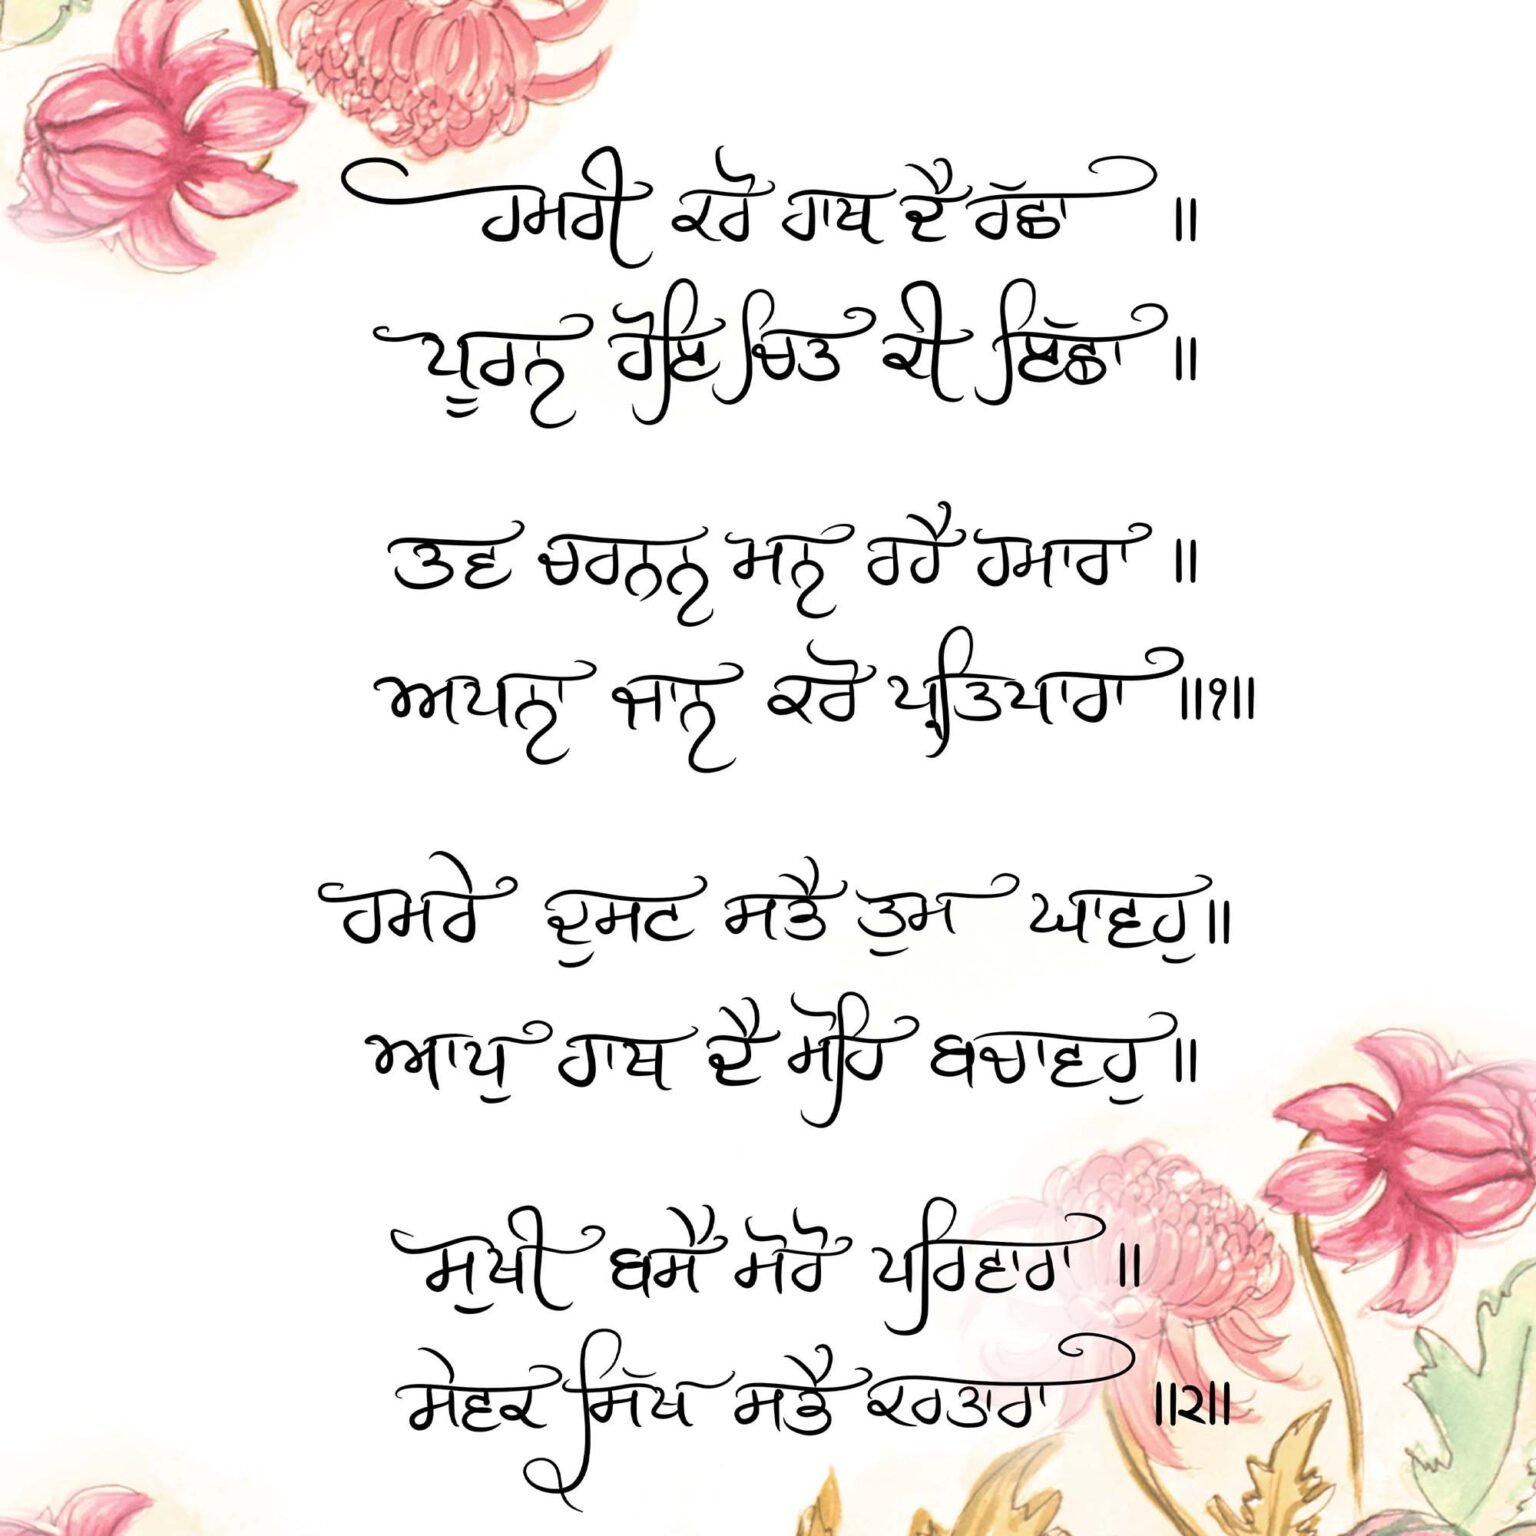 ਹਮਰੀ ਕਰੋ ਹਾਥ ਦੈ ਰੱਛਾ ॥
ਪੂਰਨ ਹੋਇ ਚਿਤ ਕੀ ਇੱਛਾ ॥
ਤਵ ਚਰਨਨ ਮਨ ਰਹੈ ਹਮਾਰਾ ॥
ਅਪਨਾ ਜਾਨ ਕਰੋ ਪ੍ਰਤਿਪਾਰਾ ॥੧॥
ਹਮਰੇ ਦੁਸਟ ਸਭੈ ਤੁਮ ਘਾਵਹੁ॥
ਆਪੁ ਹਾਥ ਦੈ ਮੋਹਿ ਬਚਾਵਹੁ ॥
ਸੁਖੀ ਬਸੈ ਮੋਰੋ ਪਰਿਵਾਰਾ ॥
ਸੇਵਕ ਸਿੱਖ ਸਭੈ ਕਰਤਾਰਾ ॥੨॥